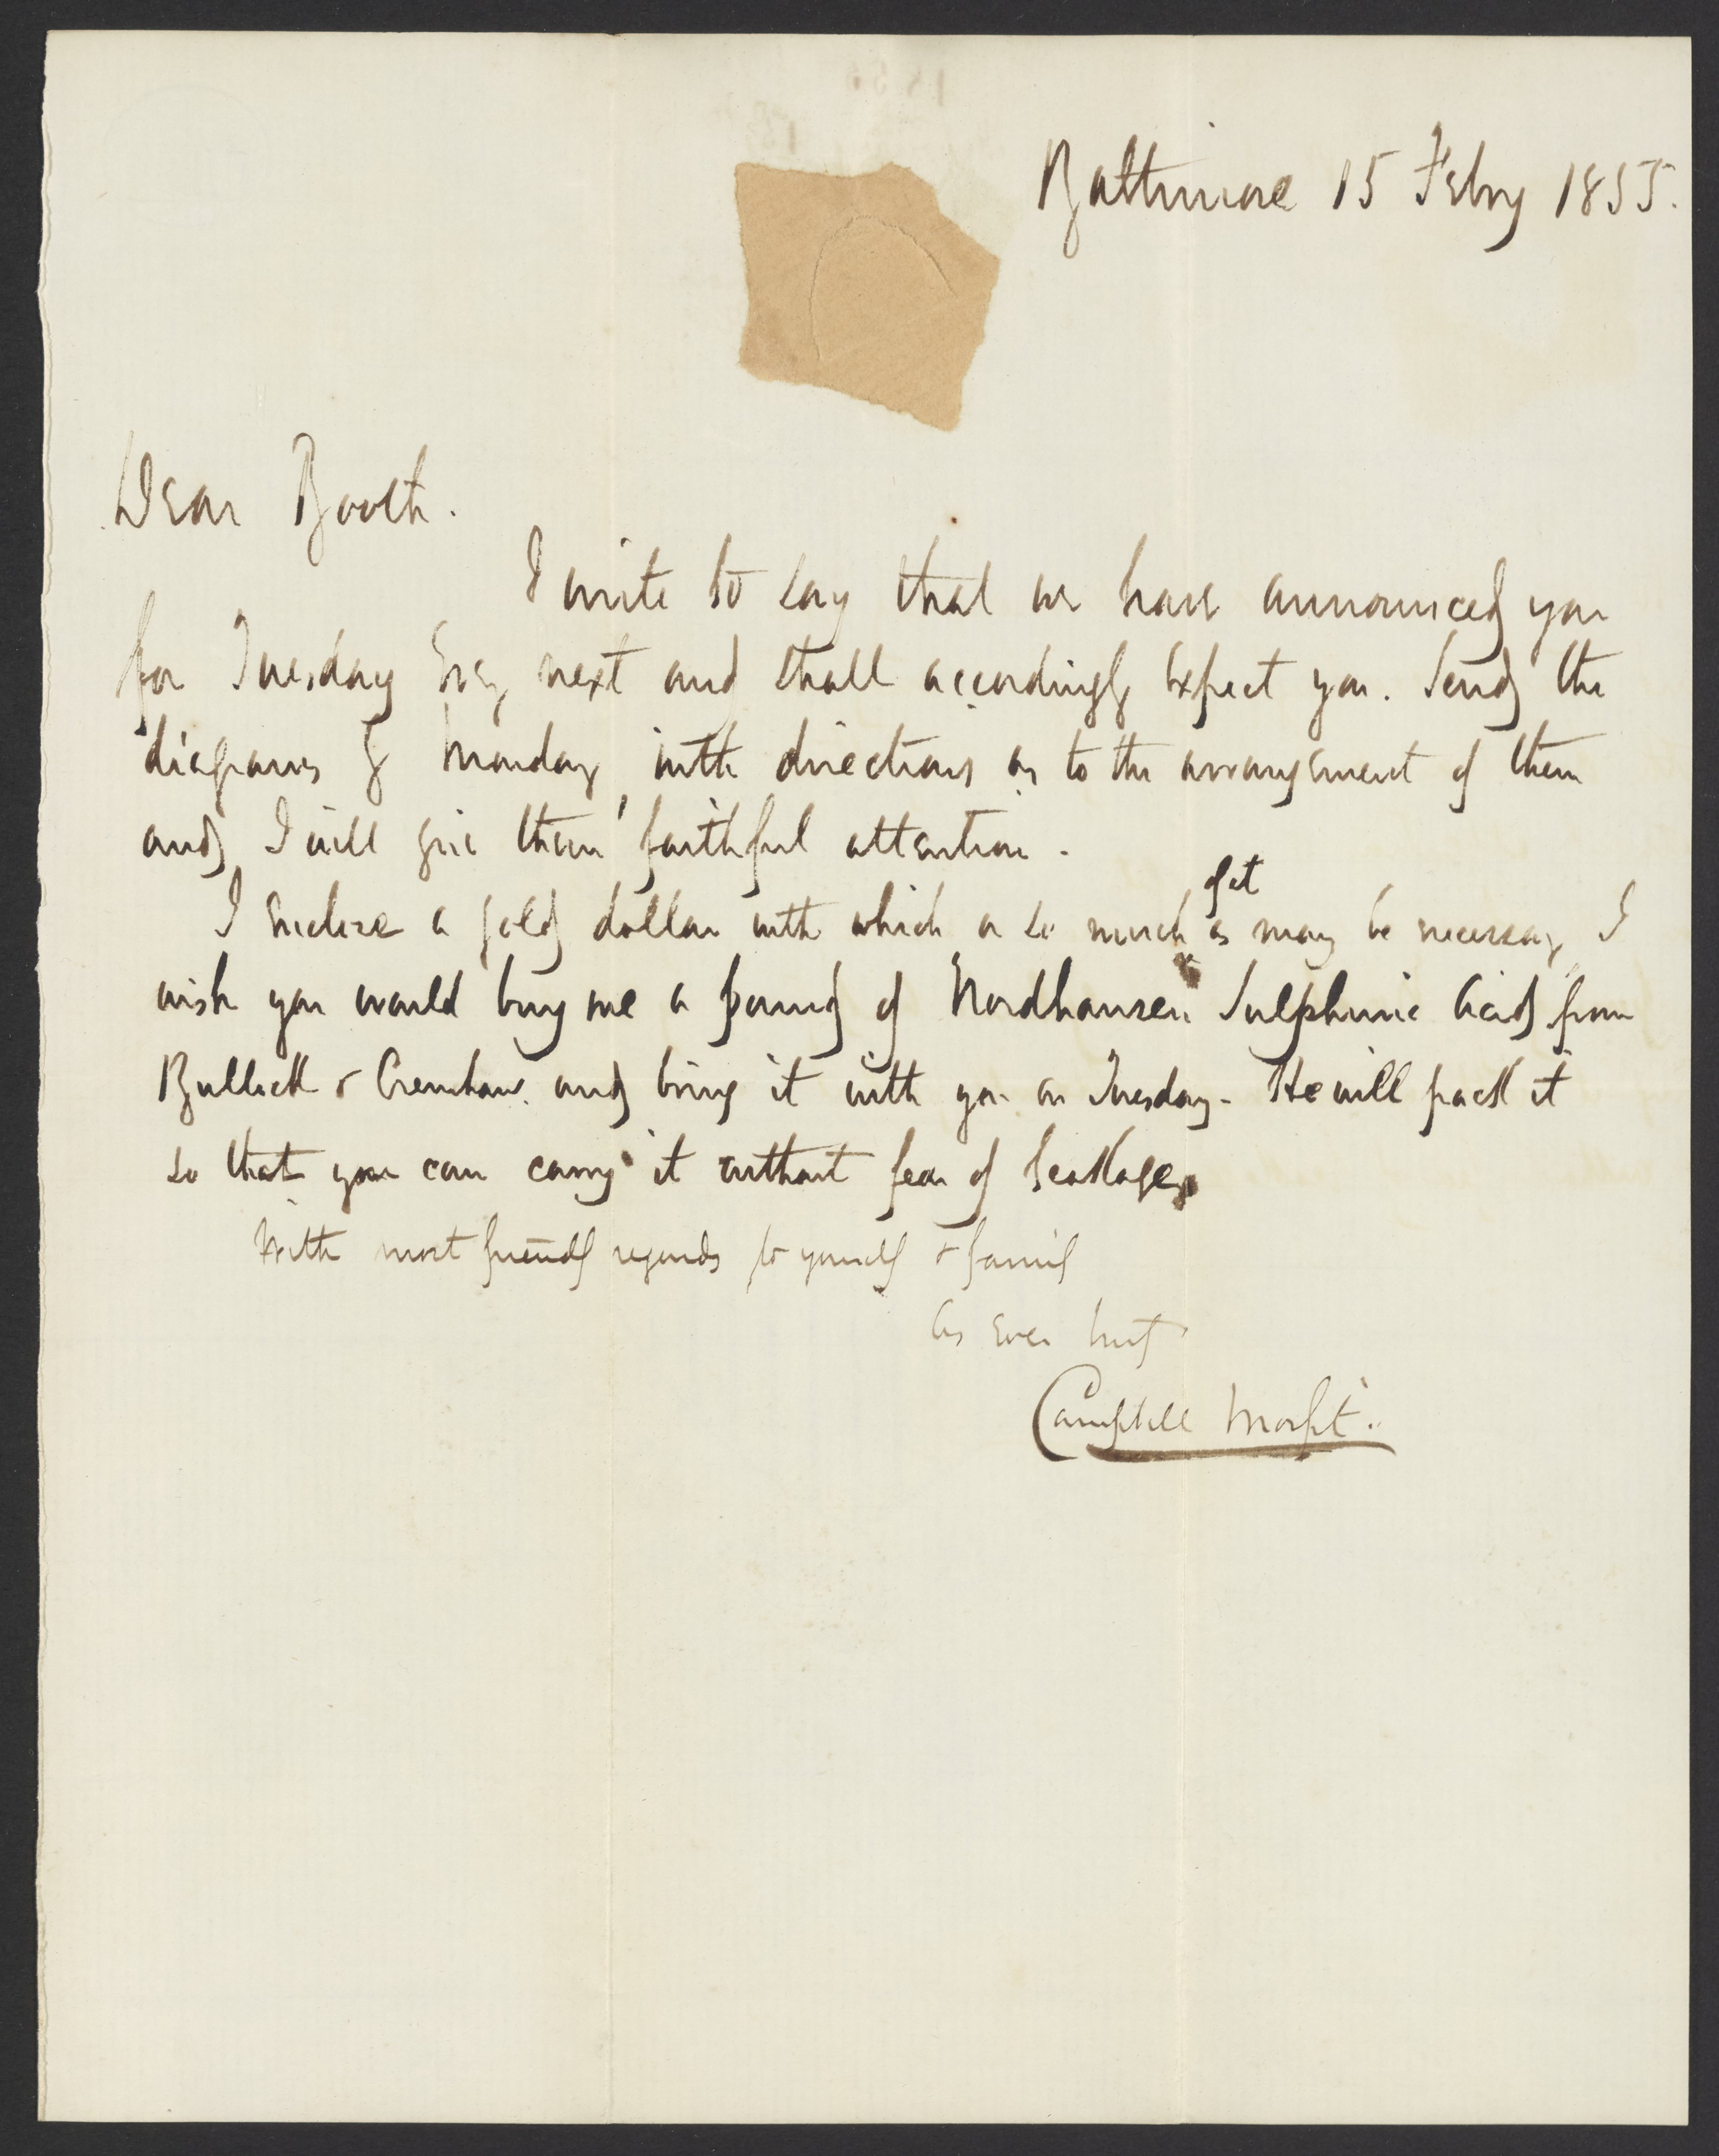 Baltimore 15 Febry 1855.
Dear Booth.
I write to say that we have announced you
for Tuesday Evg next and shall accordingly expect you. Send the
diagrams by Monday with directions as to the arrangement of them
and I will give them faithful attention.
I enclose a gold dollar with which or so much of it as may be necessary I
wish you would buy me a pound of Nordhausen Sulphuric Acid from
Bullock & Crenshaw and bring it with you on Tuesday. He will pack it
so that you can carry it without fear of leakage
With most friendly regards to yourself & family
As ever
Campbell Morfit.